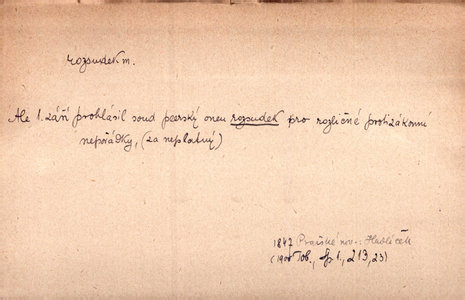 rozsudek m.
Ale 1. září prohlásil soud peerský onen rozsudek pro rozličné protizákonní
nepořádky, (za neplatný)
1847 Pražské nov.: Havlíček
(1900 Tob., Sp 1., 213, 23)